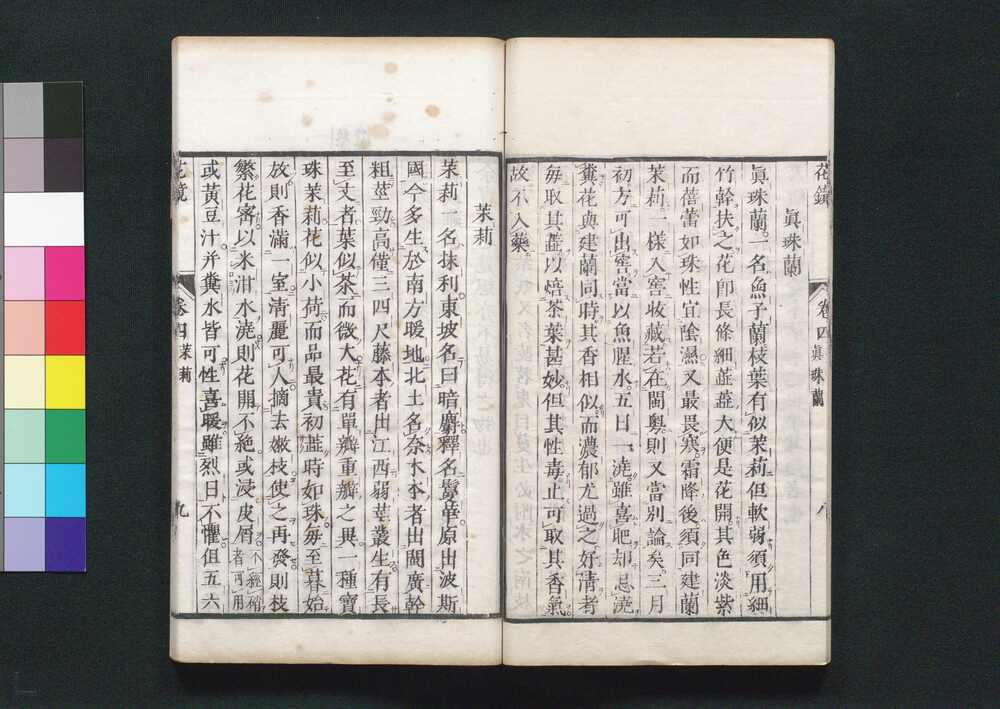 花鏡
卷四眞珠蘭
八
眞珠蘭
眞珠蘭一名魚子蘭枝葉有似茉莉但軟弱須用細
竹幹扶之花卽長條細蕋蕋大便是花開其色淡紫
而蓓蕾如珠性宜陰濕又最畏寒霜降後須同建蘭
茉莉一樣入窖收藏若在閩粵則又當別論矣三月
初方可出窖當以魚腥水五日一澆雖喜肥却忌澆
糞花與建蘭同時其香相似而濃郁尤過之好清者
每取其蕋以焙茶葉甚妙但其性毒止可取其香氣
故不入藥
茉莉
茉莉一名抹利東坡名曰暗麝釋名鬘華原出波斯
國今多生於南方暖地北土名柰木本者出閩廣幹
粗莖勁高僅三四尺藤本者出江西弱莖叢生有長
至丈者葉似茶而微大花有單瓣重瓣之異一種寶
珠茉莉花似小荷而品最貴初蕋時如珠每至暮始
放則香滿一室清麗可人摘去嫩枝使之再發則枝
繁花密以米泔水澆則花開不絕或浸皮屑不經硝者可用
或黃豆汁并糞水皆可性喜暖雖烈日不懼但五六
花鏡
卷四茉莉
九